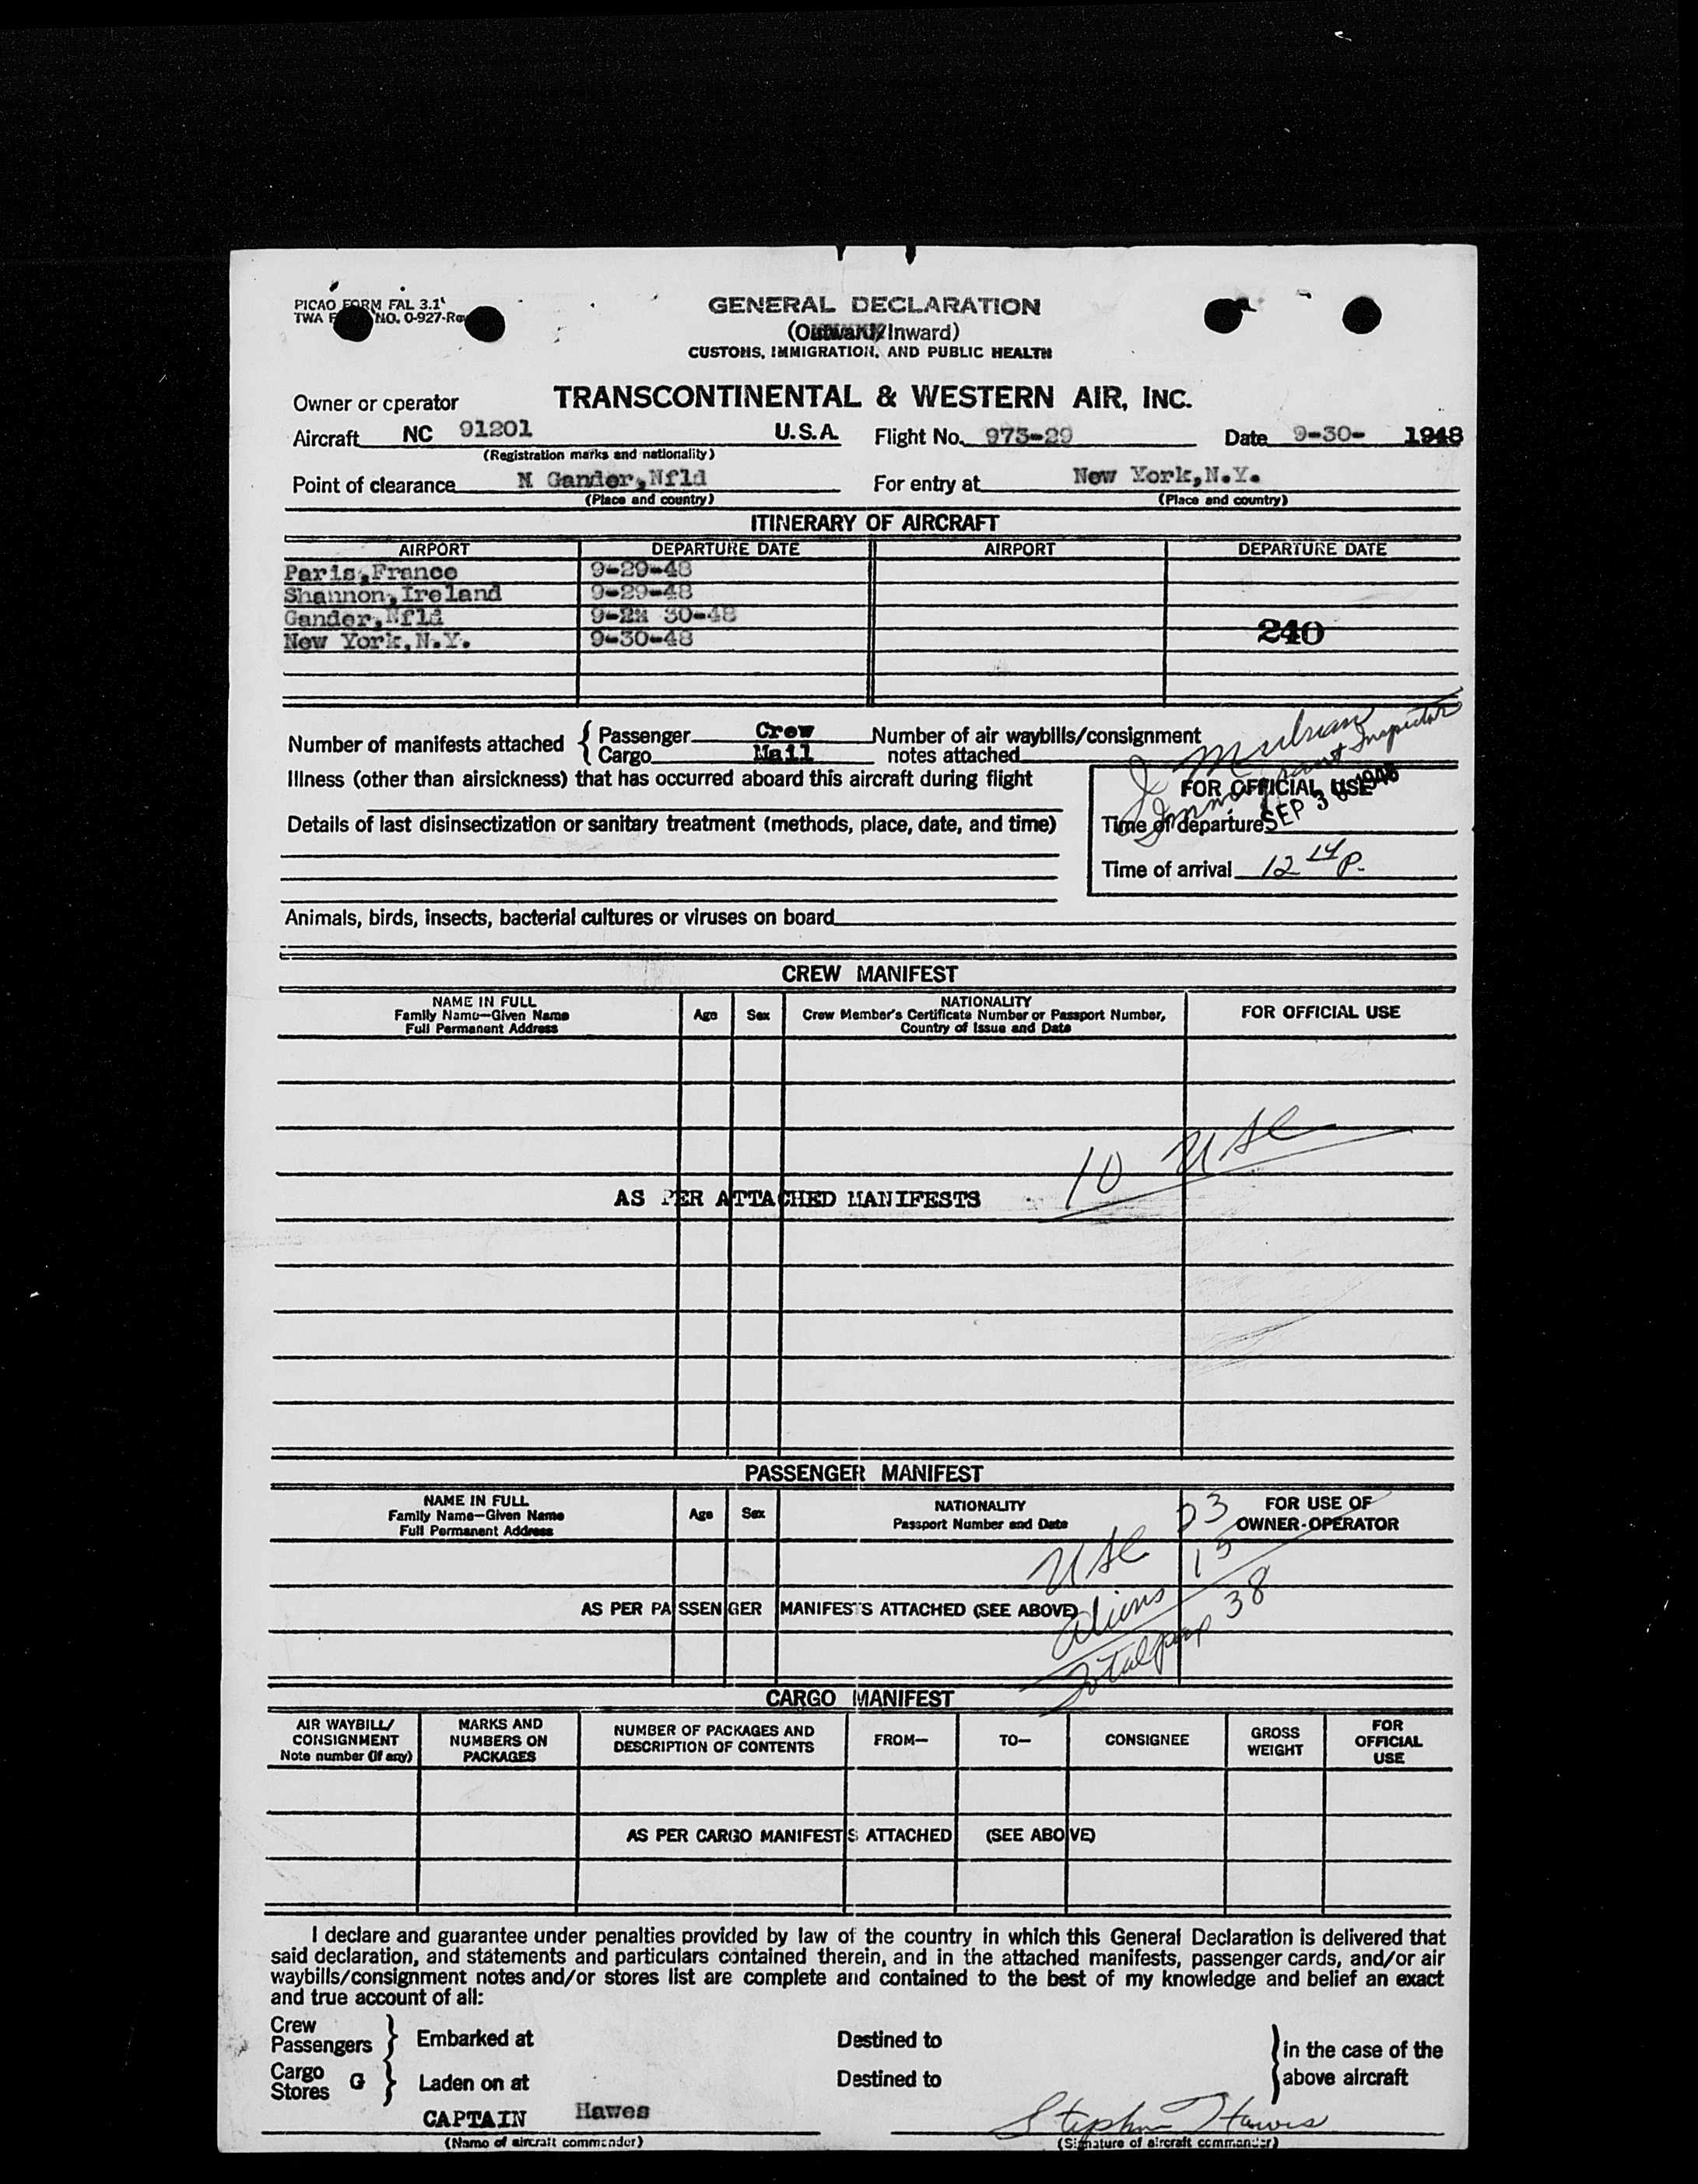 PICAO FORM FAL 3.1
GENERAL DECLARATION
TWA NO. O-927-Rev
(Outward/Inward)
CUSTOMS, IMMIGRATION, AND PUBLIC HEALTH
Owner or operator TRANSCONTINENTAL & WESTERN AIR, INC.
Aircraft NC 91201 U.S.A. Flight No. 973-29 Date 9-30- 1948
(Registration marks and nationality)
Point of clearance N Gander, Nfld For entry at New York, N.Y.
(Place and country) (Place and country)
ITINERARY OF AIRCRAFT
AIRPORT DEPARTURE DATE AIRPORT DEPARTURE DATE
Paris, France 9-29-48
Shannon, Ireland 9-29-48
Gander, Nfld 9-2x 30-48
New York, N.Y. 9-30-48 240
Number of manifests attached { Passenger Crew Number of air waybills/consignment
Cargo Mail notes attached
Immigrant Inspector
Illness (other than airsickness) that has occurred aboard this aircraft during flight
FOR OFFICIAL USE
SEP 30 1948
Details of last disinsectization or sanitary treatment (methods, place, date, and time)
Time of departure
Time of arrival 12 14 P.
Animals, birds, insects, bacterial cultures or viruses on board
CREW MANIFEST
NAME IN FULL
Family Name—Given Name
Full Permanent Address
Age Sex
NATIONALITY
Crew Member's Certificate Number or Passport Number,
Country of Issue and Date
FOR OFFICIAL USE
10 USC
AS PER ATTACHED MANIFESTS
PASSENGER MANIFEST
NAME IN FULL
Family Name—Given Name
Full Permanent Address
Age Sex
NATIONALITY
Passport Number and Date
FOR USE OF
OWNER-OPERATOR
USC 23
aliens 15
Total pax 38
AS PER PASSENGER MANIFESTS ATTACHED (SEE ABOVE)
CARGO MANIFEST
AIR WAYBILL/
CONSIGNMENT
Note number (if any)
MARKS AND
NUMBERS ON
PACKAGES
NUMBER OF PACKAGES AND
DESCRIPTION OF CONTENTS
FROM— TO— CONSIGNEE
GROSS
WEIGHT
FOR
OFFICIAL
USE
AS PER CARGO MANIFESTS ATTACHED (SEE ABOVE)
I declare and guarantee under penalties provided by law of the country in which this General Declaration is delivered that
said declaration, and statements and particulars contained therein, and in the attached manifests, passenger cards, and/or air
waybills/consignment notes and/or stores list are complete and contained to the best of my knowledge and belief an exact
and true account of all:
Crew
Passengers } Embarked at Destined to
Cargo
Stores G } Laden on at Destined to
} in the case of the
above aircraft
CAPTAIN Hawes Stephen Hawes
(Name of aircraft commander) (Signature of aircraft commander)